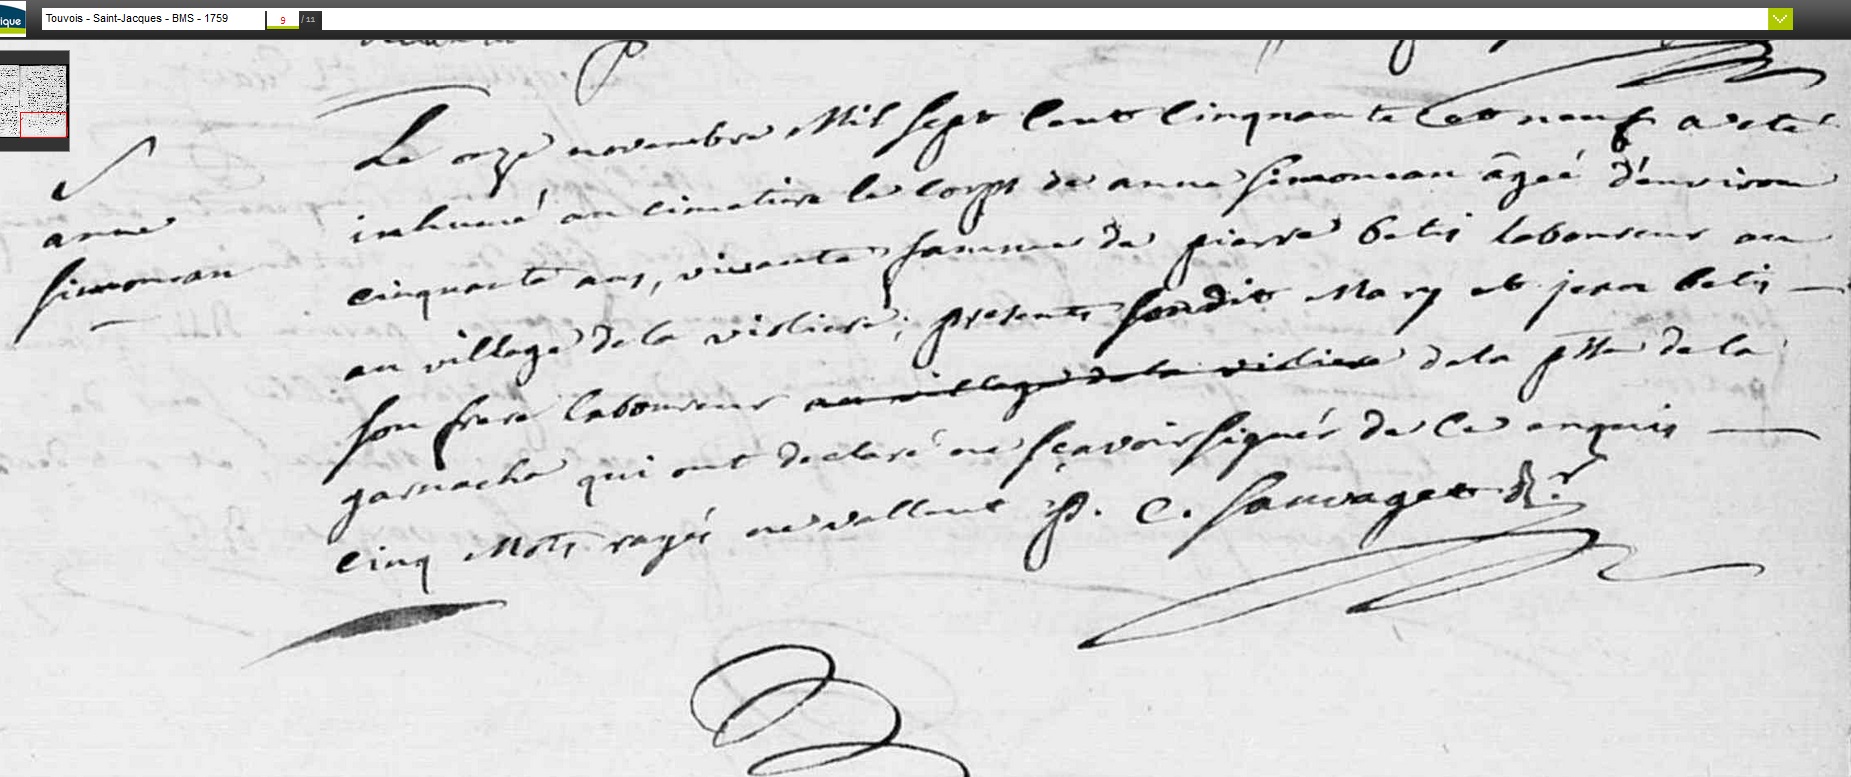 Touvois - Saint-Jacques - BMS - 1759
9 / 11
ique
S
anne
simoneau
Le onze novembre Mil sept Cent Cinquante et neuf a ete
inhumé au cimetiere le corps de anne simoneau âgeé d'environ
cinquante ans, vivante famme de pierre betis laboureur au
au village de la visliere; presents sondit Mary et jean betis
son frere laboureur au village de la visliere de la psse de la
garnache qui ont declaré ne sçavoir signér de Ce enquis
cinq Mots rayés ne vallent P. C. Sauvaget